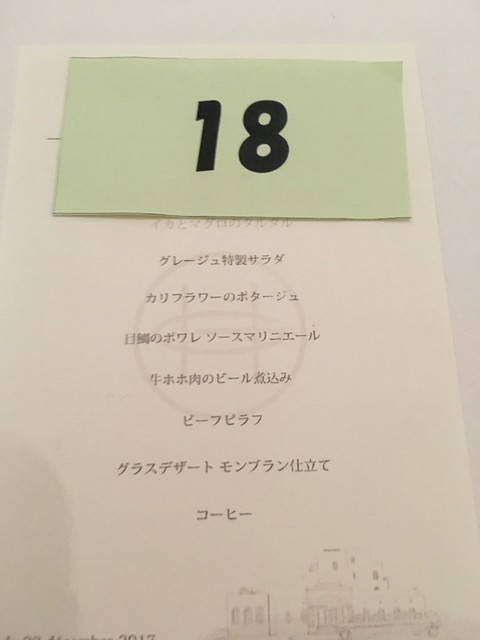 18
イカとマグロのタルタル
グレージュ特製サラダ
カリフラワーのポタージュ
目鯛のポワレ ソースマリニエール
牛ホホ肉のビール煮込み
ビーフピラフ
グラスデザート モンブラン仕立て
コーヒー
décembre 2017